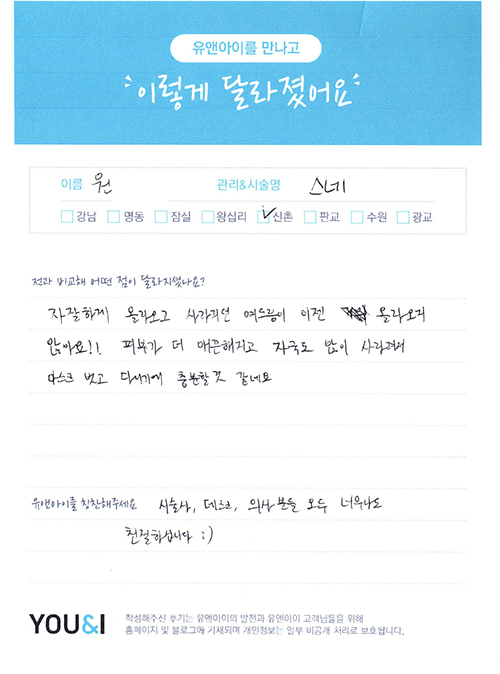 유앤아이를 만나고
이렇게 달라졌어요
이름 원 관리&시술명 스네
강남 명동 잠실 왕십리 신촌 판교 수원 광교
전과 비교해 어떤 점이 달라지셨나요?
자잘하게 올라오고 사라지던 여드름이 이젠 올라오지
않아요!! 피부가 더 매끈해지고 자국도 많이 사라져서
마스크 벗고 다니기에 충분할 것 같네요
유앤아이를 칭찬해주세요 시술사, 데스크, 의사분들 모두 너무나도
친절하십니다 :)
YOU&I 작성해주신 후기는 유앤아이의 발전과 유앤아이 고객님들을 위해
홈페이지 및 블로그에 기재되며 개인정보는 일부 비공개 처리로 보호됩니다.